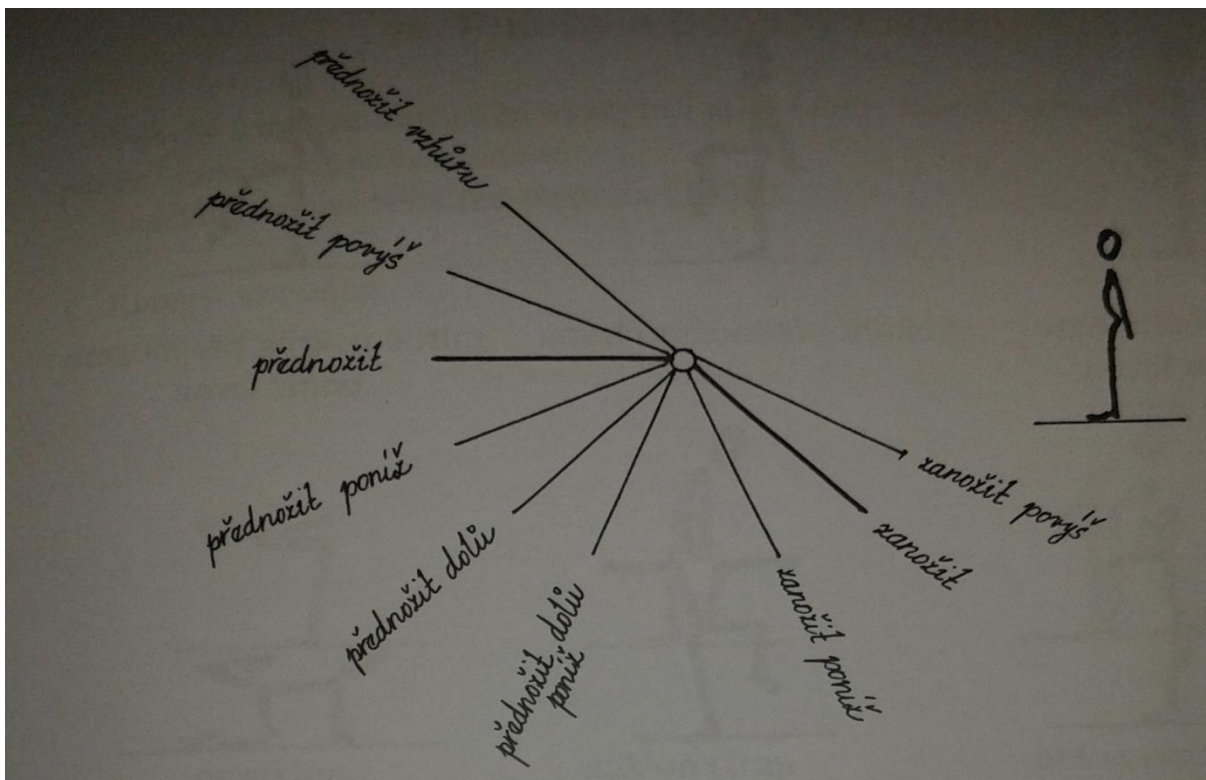 přednožit vzhůru
přednožit povýš
přednožit
přednožit poníž
přednožit dolů
přednožit dolů
poníž
zanožit poníž
zanožit
zanožit povýš